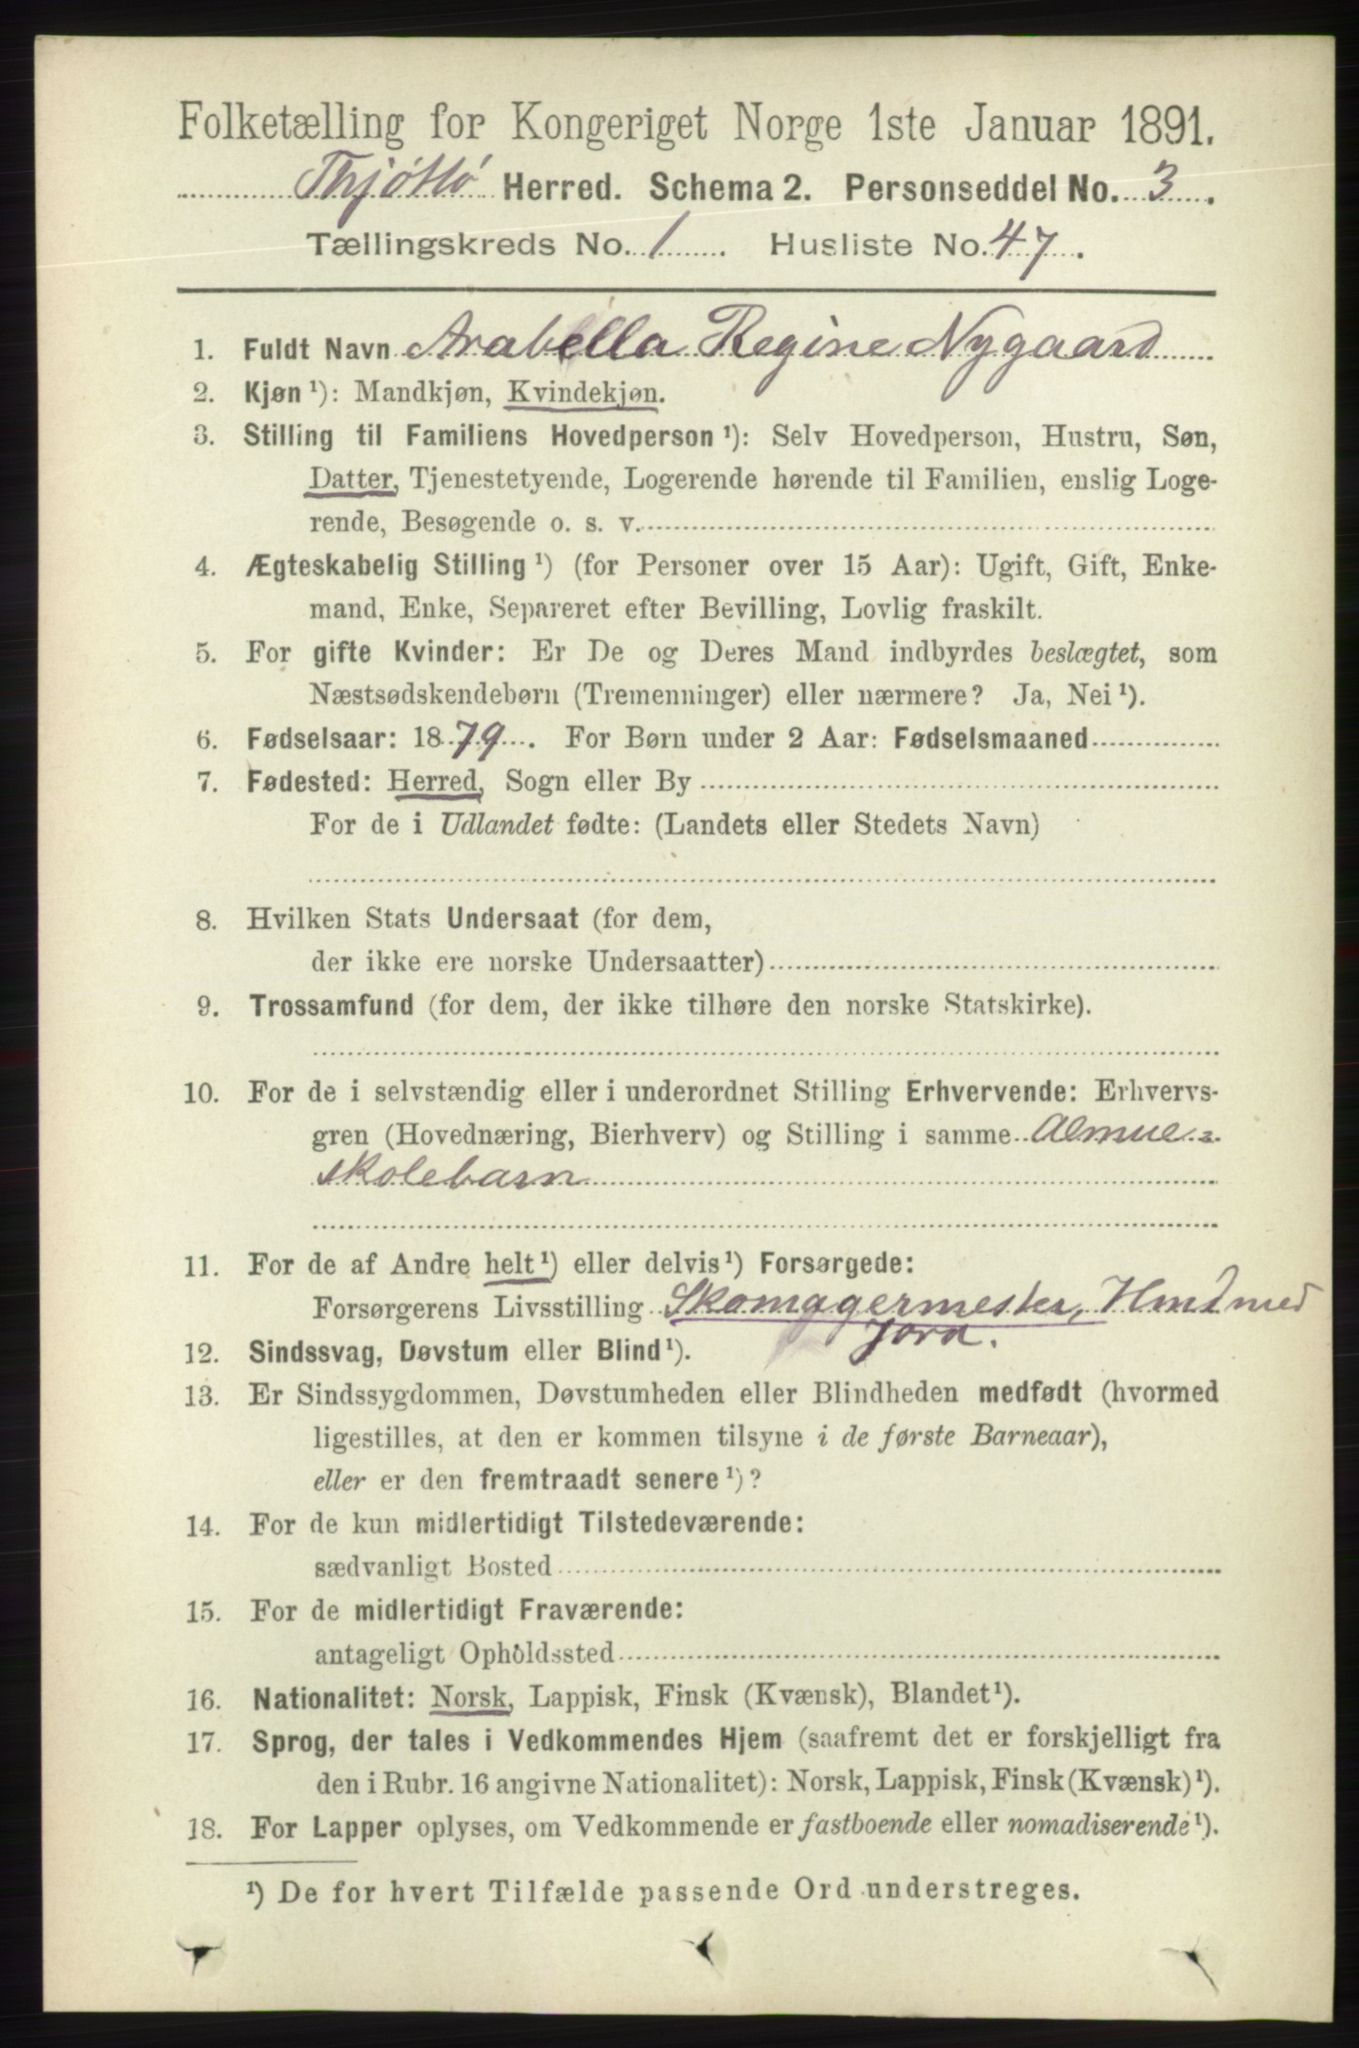 Folketælling for Kongeriget Norge 1ste Januar 1891.
Thjøttø Herred. Schema 2. Personseddel No. 3.
Tællingskreds No. 1. Husliste No. 47.
1. Fuldt Navn Arabella Regine Nygaard
2. Kjøn ¹): Mandkjøn, Kvindekjøn.
3. Stilling til Familiens Hovedperson ¹): Selv Hovedperson, Hustru, Søn,
Datter, Tjenestetyende, Logerende hørende til Familien, enslig Loge-
rende, Besøgende o. s. v.
4. Ægteskabelig Stilling ¹) (for Personer over 15 Aar): Ugift, Gift, Enke-
mand, Enke, Separeret efter Bevilling, Lovlig fraskilt.
5. For gifte Kvinder: Er De og Deres Mand indbyrdes beslægtet, som
Næstsødskendebørn (Tremenninger) eller nærmere? Ja, Nei ¹).
6. Fødselsaar: 1879. For Børn under 2 Aar: Fødselsmaaned
7. Fødested: Herred, Sogn eller By
For de i Udlandet fødte: (Landets eller Stedets Navn)
8. Hvilken Stats Undersaat (for dem,
der ikke ere norske Undersaatter)
9. Trossamfund (for dem, der ikke tilhøre den norske Statskirke).
10. For de i selvstændig eller i underordnet Stilling Erhvervende: Erhvervs-
gren (Hovednæring, Bierhverv) og Stilling i samme Almue-
skolebarn
11. For de af Andre helt ¹) eller delvis ¹) Forsørgede:
Forsørgerens Livsstilling Skomagermester, Hmd med
Jord.
12. Sindssvag, Døvstum eller Blind ¹).
13. Er Sindssygdommen, Døvstumheden eller Blindheden medfødt (hvormed
ligestilles, at den er kommen tilsyne i de første Barneaar),
eller er den fremtraadt senere ¹)?
14. For de kun midlertidigt Tilstedeværende:
sædvanligt Bosted
15. For de midlertidigt Fraværende:
antageligt Opholdssted
16. Nationalitet: Norsk, Lappisk, Finsk (Kvænsk), Blandet ¹).
17. Sprog, der tales i Vedkommendes Hjem (saafremt det er forskjelligt fra
den i Rubr. 16 angivne Nationalitet): Norsk, Lappisk, Finsk (Kvænsk) ¹).
18. For Lapper oplyses, om Vedkommende er fastboende eller nomadiserende ¹).
¹) De for hvert Tilfælde passende Ord understreges.